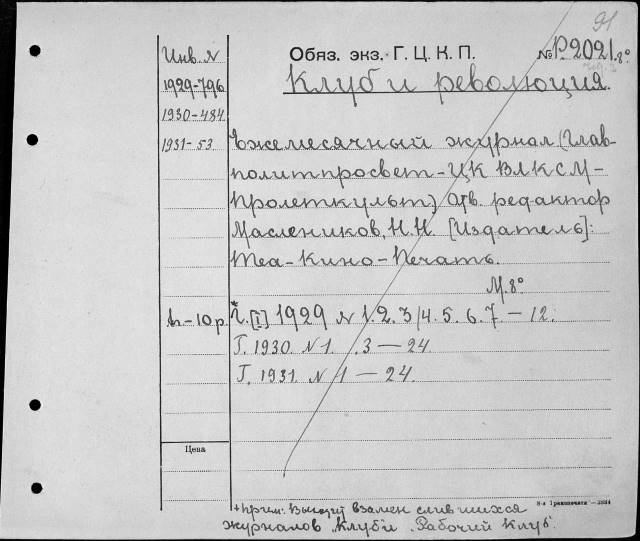 91
Инв. N
Обяз. экз. Г. Ц. К. П. № Р2021.8°
Клуб и революция.
1929-796
1930-484
1931-53
Ежемесячный журнал (Глав-
политпросвет-ЦК ВЛКСМ-
Пролеткульт) Отв. редактор
Маслеников, Н.Н. [Издатель]:
Теа-Кино-Печать.
М. 8°
-10 р.
*Г. [I] 1929 N 1. 2. 3/4. 5. 6. 7 - 12.
Г. 1930. N 1. .3 - 24
Г. 1931. N 1 - 24.
Цена
+прим: Выходит взамен слившихся
журналов "Клуб" и "Рабочий Клуб".